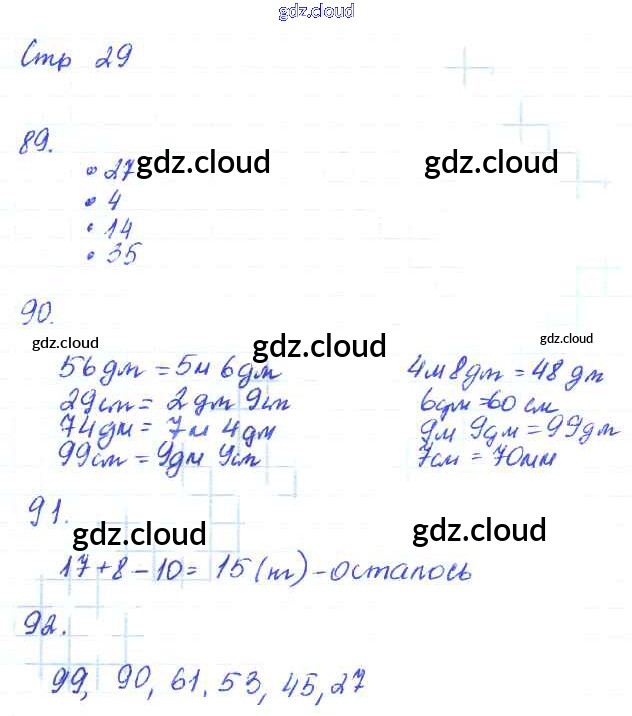 gdz.cloud
Стр 29
89.
• 27 gdz.cloud gdz.cloud
• 4
• 14
• 35
90.
gdz.cloud gdz.cloud gdz.cloud
56дм = 5м 6дм 4м8дм = 48 дм
29см = 2 дм 9см 6дм =60 см
74дм = 7м 4дм 9м 9дм = 99дм
99см = 9дм 9см 7см = 70мм
91.
gdz.cloud gdz.cloud
17+8-10= 15(т) - осталось
92.
99, 90, 61. 53, 45, 27